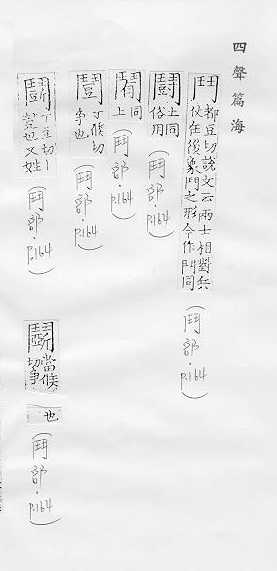 四聲篇海
鬥 都豆切說文云兩士相對兵
仗在後象鬥之形今作鬥同
(鬥部.P.164)
鬪 上同
俗用
(鬥部.P.164)
同
上
(鬥部.P.164)
丁候切
爭也
(鬥部.P.164)
鬭 丁豆切
也又姓
(鬥部.P.164)
當候
切爭
也
(鬥部.P.164)